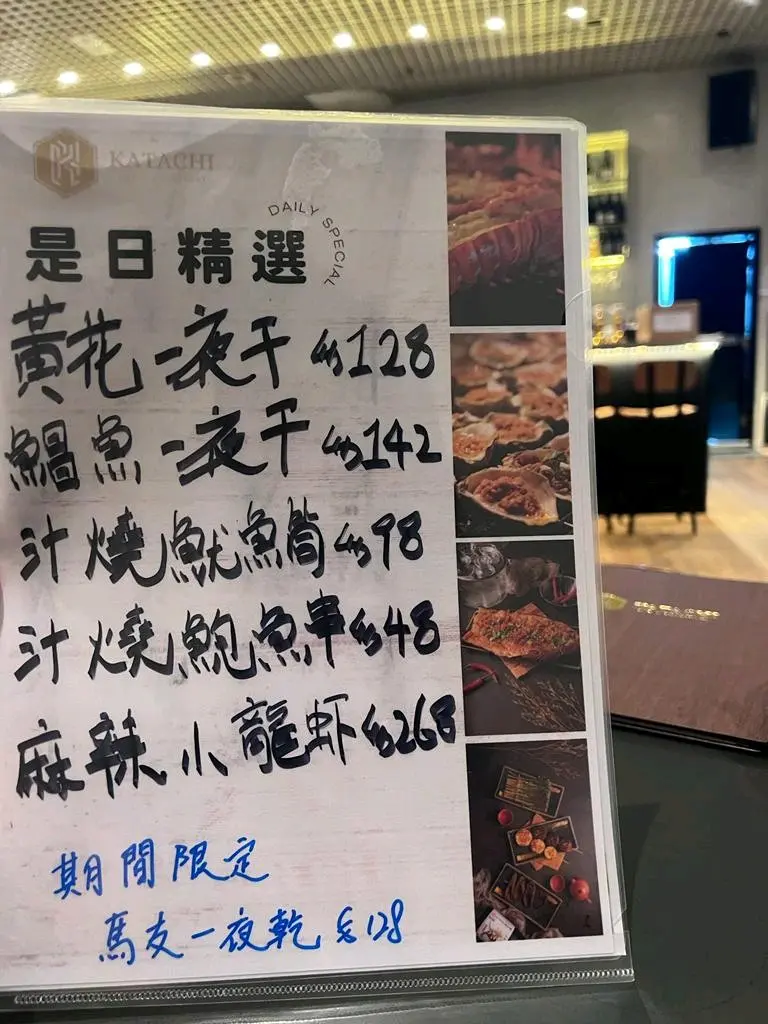 KATACHI
DAILY SPECIAL
是日精選
黃花一夜干 $128
鯧魚一夜干 $142
汁燒魷魚筒 $98
汁燒鮑魚串 $48
麻辣小龍虾 $268
期間限定
馬友一夜乾 $128